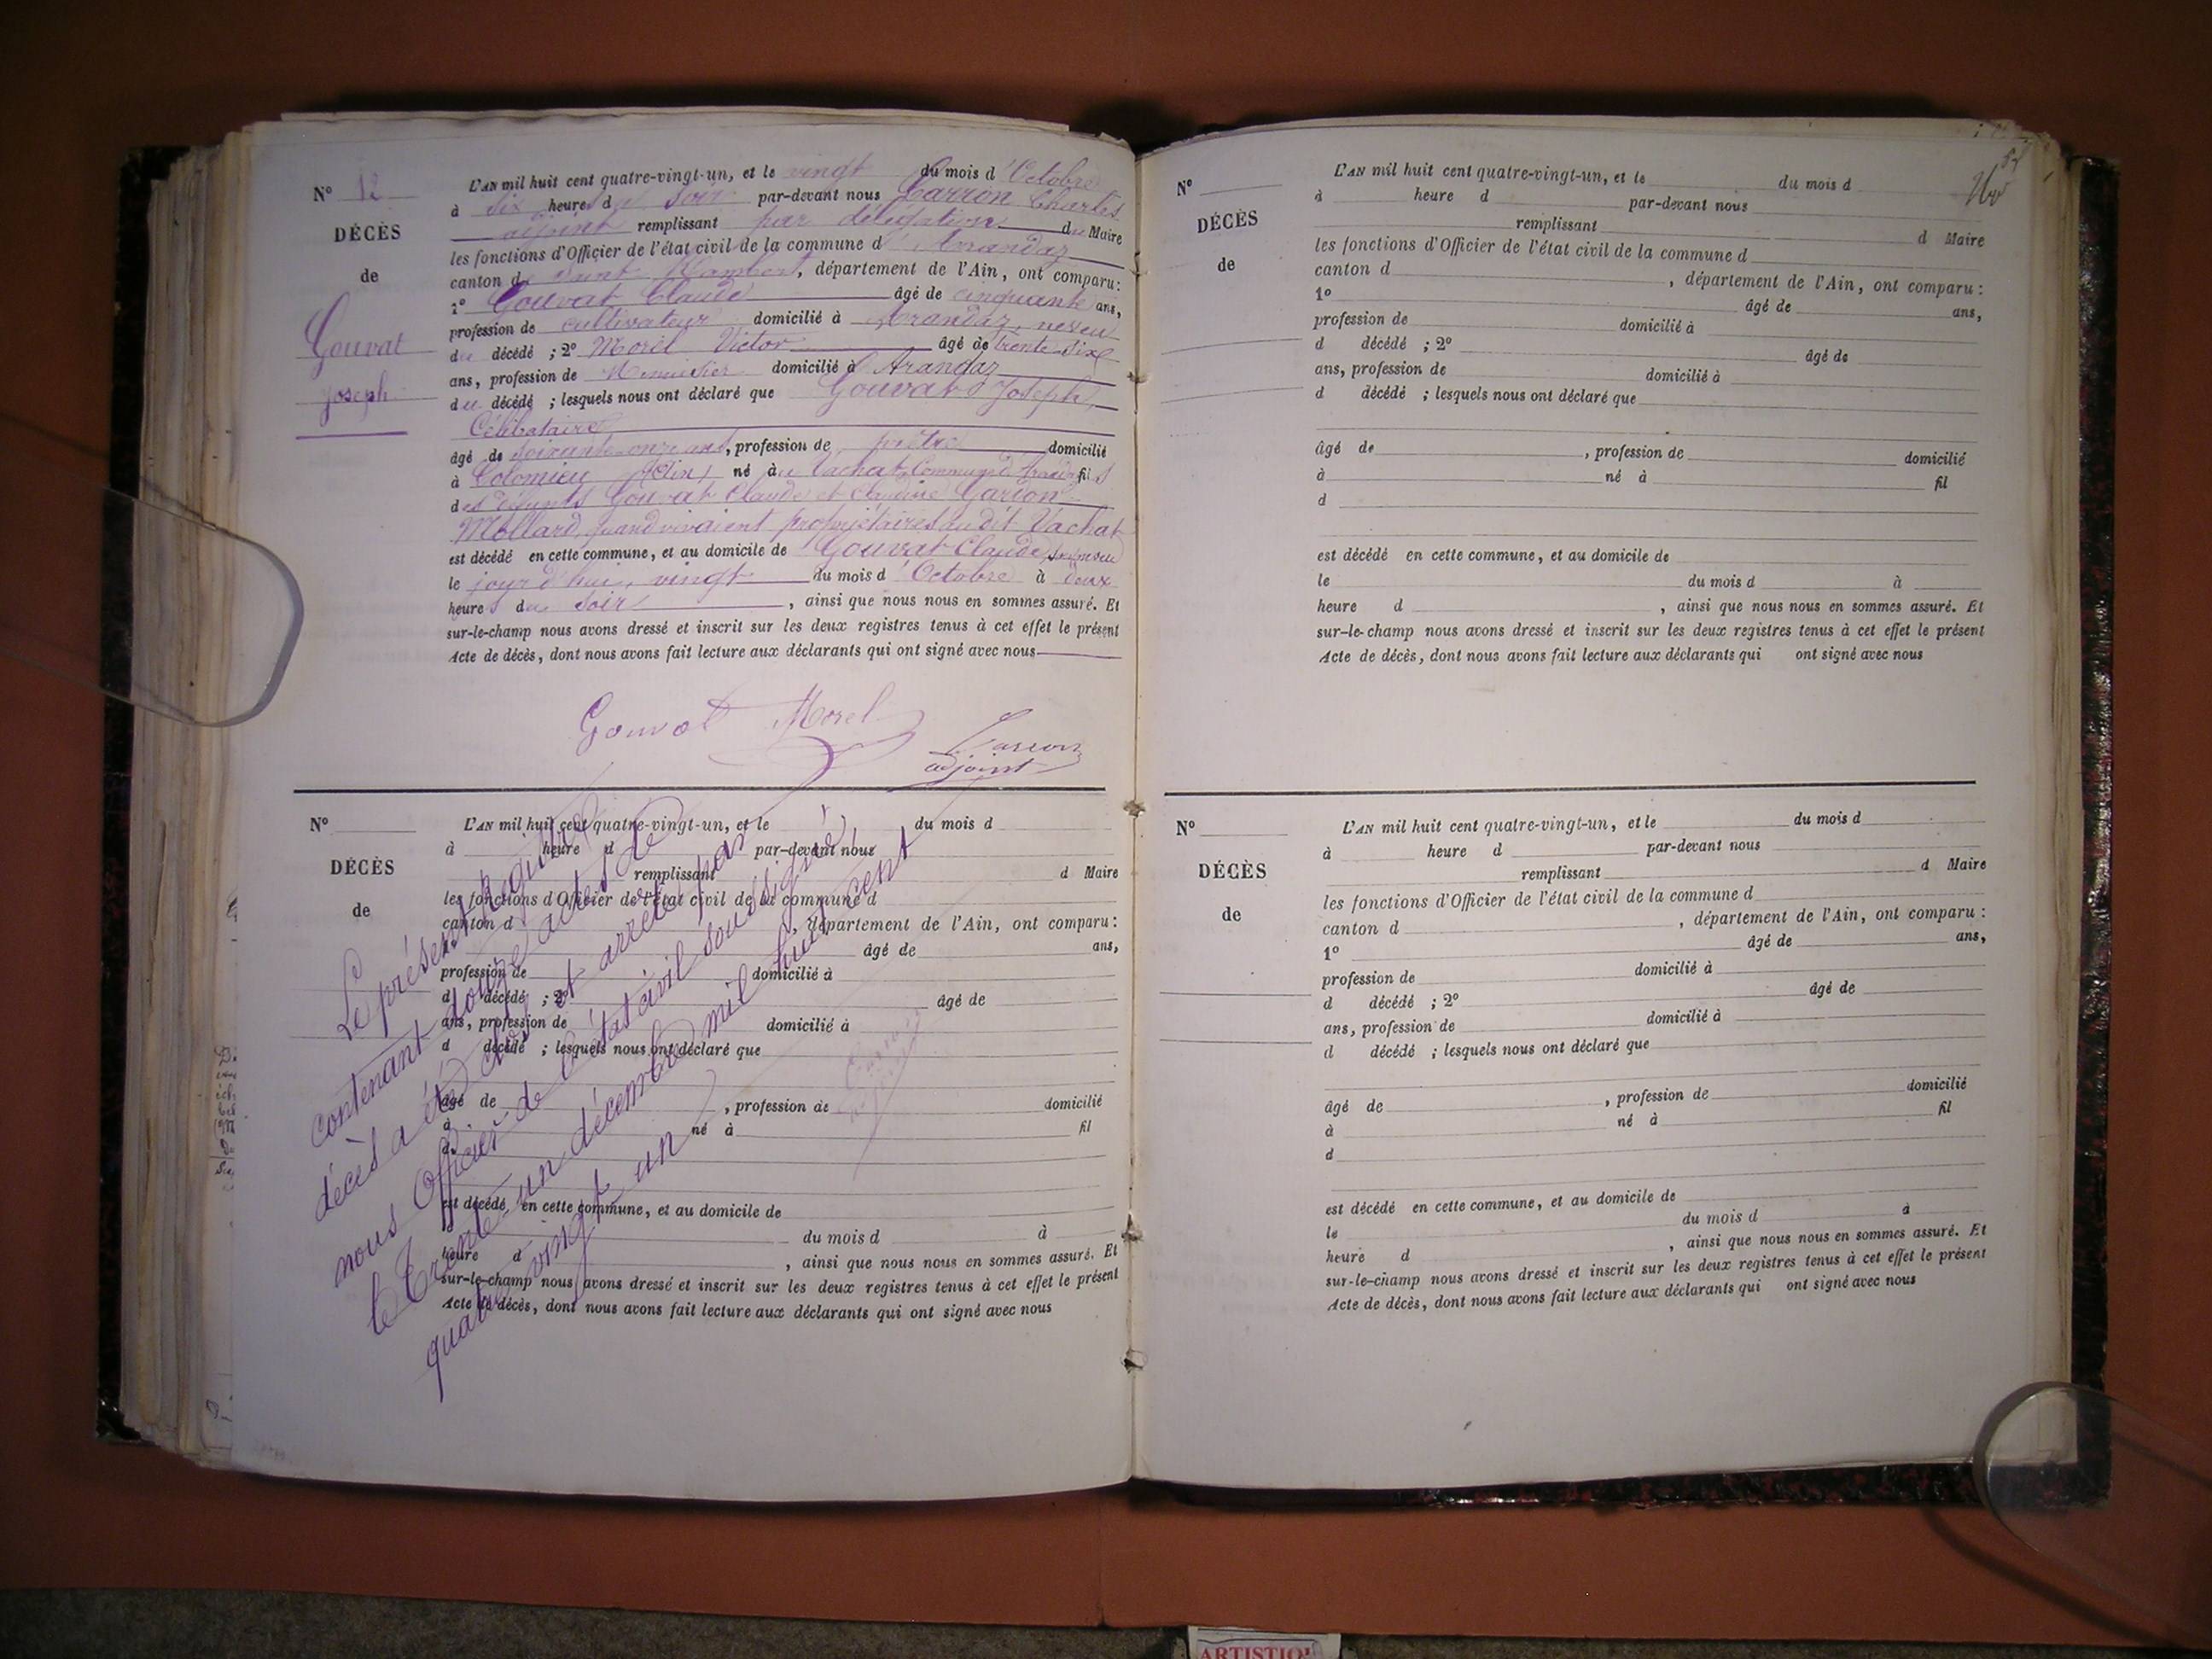 N° 12
DÉCÈS
de
Gouvat
Joseph
L'AN mil huit cent quatre-vingt-un, et le vingt du mois d'Octobre
à six heures du soir par-devant nous Carron Charles
adjoint remplissant par délégation du Maire
les fonctions d'Officier de l'état civil de la commune d'Arandaz
canton de Saint Rambert, département de l'Ain, ont comparu:
1° Gouvat Claude âgé de cinquante ans,
profession de cultivateur domicilié à Arandaz, neveu
du décédé ; 2° Morel Victor âgé de trente-six
ans, profession de Menuisier domicilié à Arandaz
du décédé ; lesquels nous ont déclaré que Gouvat Joseph,
Célibataire
âgé de soixante-onze ans, profession de prêtre domicilié
à Colomieu (Ain) né à Vachat Commune d'Arandaz fils
des défunts Gouvat Claude et Claudine
Mollard, quand vivaient propriétaires au dit Vachat
est décédé en cette commune, et au domicile de Gouvat Claude, son neveu
le jour d'hui, vingt du mois d'Octobre à deux
heures du soir, ainsi que nous nous en sommes assuré. Et
sur-le-champ nous avons dressé et inscrit sur les deux registres tenus à cet effet le présent
Acte de décès, dont nous avons fait lecture aux déclarants qui ont signé avec nous
Gouvat Morel
Carron
adjoint
N°
DÉCÈS
de
L'AN mil huit cent quatre-vingt-un, et le du mois d
à heure d par-devant nous
remplissant d Maire
les fonctions d'Officier de l'état civil de la commune d
canton d , département de l'Ain, ont comparu:
âgé de ans,
profession de domicilié à
d décédé ; 2° âgé de
ans, profession de domicilié à
d décédé ; lesquels nous ont déclaré que
âgé de , profession de domicilié
à né à fil
d
est décédé en cette commune, et au domicile de
du mois d à
heure d , ainsi que nous nous en sommes assuré. Et
sur-le-champ nous avons dressé et inscrit sur les deux registres tenus à cet effet le présent
Acte de décès, dont nous avons fait lecture aux déclarants qui ont signé avec nous
Le présent Registre
contenant douze actes de
décès a été clos et arrêté par
nous Officier de l'état civil soussigné
le Trente-un décembre mil huit cent
quatre vingt un
N°
DÉCÈS
de
L'AN mil huit cent quatre-vingt-un, et le du mois d
à heure d par-devant nous
remplissant d Maire
les fonctions d'Officier de l'état civil de la commune d
canton d , département de l'Ain, ont comparu:
1° âgé de ans,
profession de domicilié à
d décédé ; 2° âgé de
ans, profession de domicilié à
d décédé ; lesquels nous ont déclaré que
âgé de , profession de domicilié
à né à fil
d
est décédé en cette commune, et au domicile de
le du mois d à
heure d , ainsi que nous nous en sommes assuré. Et
sur-le-champ nous avons dressé et inscrit sur les deux registres tenus à cet effet le présent
Acte de décès, dont nous avons fait lecture aux déclarants qui ont signé avec nous
N°
DÉCÈS
de
L'AN mil huit cent quatre-vingt-un, et le du mois d
à heure d par-devant nous
remplissant d Maire
les fonctions d'Officier de l'état civil de la commune d
canton d , département de l'Ain, ont comparu:
1° âgé de ans,
profession de domicilié à
d décédé ; 2° âgé de
ans, profession de domicilié à
d décédé ; lesquels nous ont déclaré que
âgé de , profession de domicilié
à né à fil
d
est décédé en cette commune, et au domicile de
le du mois d à
heure d , ainsi que nous nous en sommes assuré. Et
sur-le-champ nous avons dressé et inscrit sur les deux registres tenus à cet effet le présent
Acte de décès, dont nous avons fait lecture aux déclarants qui ont signé avec nous